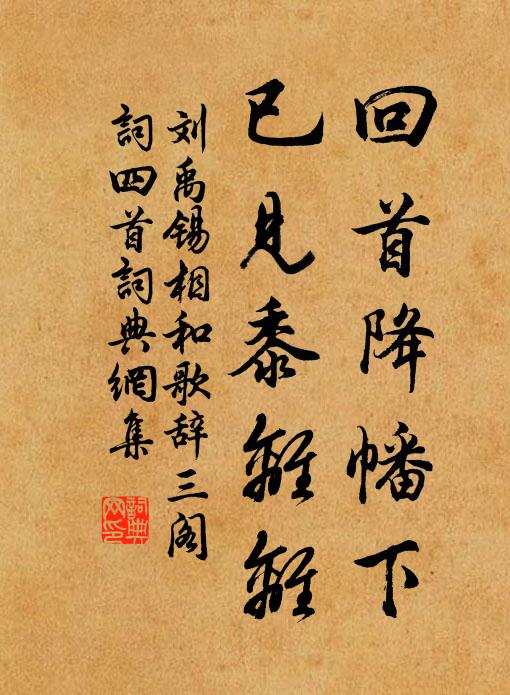 回首降幡下
已见黍離離
刘禹锡相和歌辞三阁
詞四首詞典網集
詞典
网印